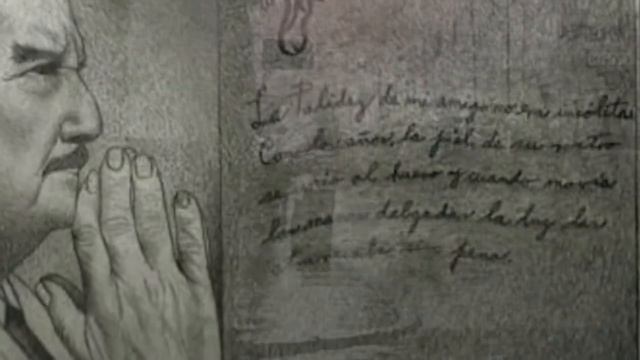 La Palidez de mi amigo no era insólita
Con los años, la piel de su rostro
se al hueso y cuando movía
las manos delgadas la luz las
atravesaba pena